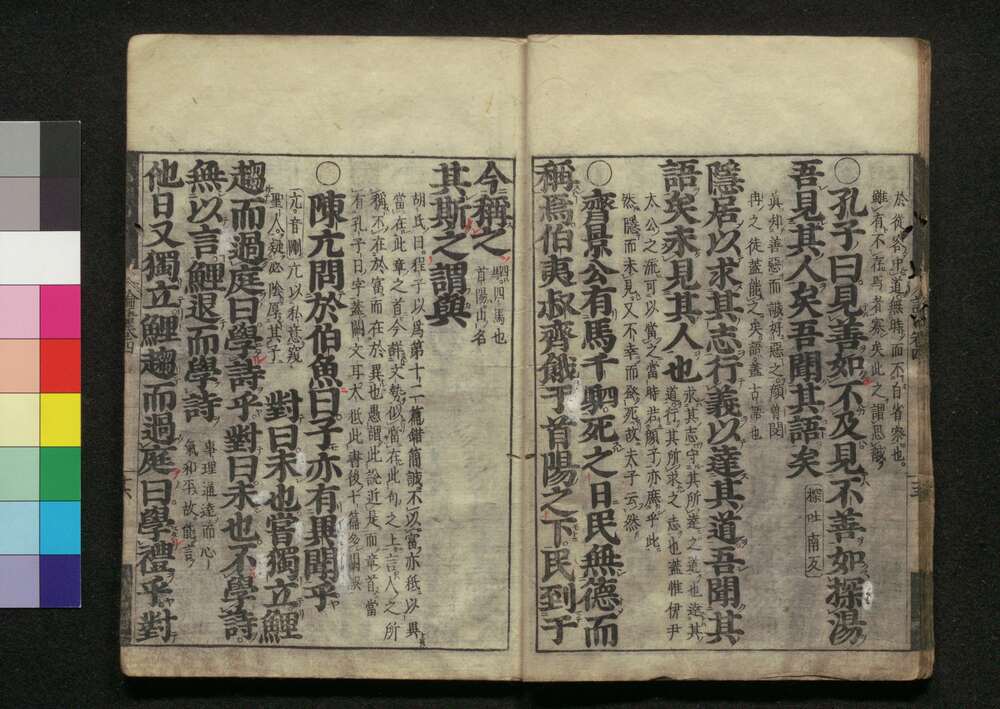 於從容中道無時而不自省察也
雖有不存焉者寡矣此之謂思誠
○孔子曰見善如不及見不善如探湯
吾見其人矣吾聞其語矣
探吐南反
真知善惡而誠好惡之顏曾閔
冉之徒蓋能之矣語蓋古語也
隱居以求其志行義以達其道吾聞其
語矣未見其人也
求其志守其所達之道也達其
道行其所求之志也蓋惟伊尹
太公之流可以當之當時若顏子亦庶乎此
然隱而未見又不幸而蚤死故夫子云然
○齊景公有馬千駟死之日民無德而
稱焉伯夷叔齊餓于首陽之下民到于
今稱之
駟四馬也
首陽山名
其斯之謂與
胡氏曰程子以爲第十二篇錯簡誠不以富亦秪以異
當在此章之首今詳文勢似當在此句之上言人之所
稱不在於富而在於異也愚謂此說近是而章首當
有孔子曰字蓋闕文耳大抵此書後十篇多闕誤
○陳亢問於伯魚曰子亦有異聞乎
亢音剛 亢以私意窺
聖人疑必陰厚其子
對曰未也嘗獨立鯉
趨而過庭曰學詩乎對曰未也不學詩
無以言鯉退而學詩
事理通達而心
氣和平故能言
他日又獨立鯉趨而過庭曰學禮乎對